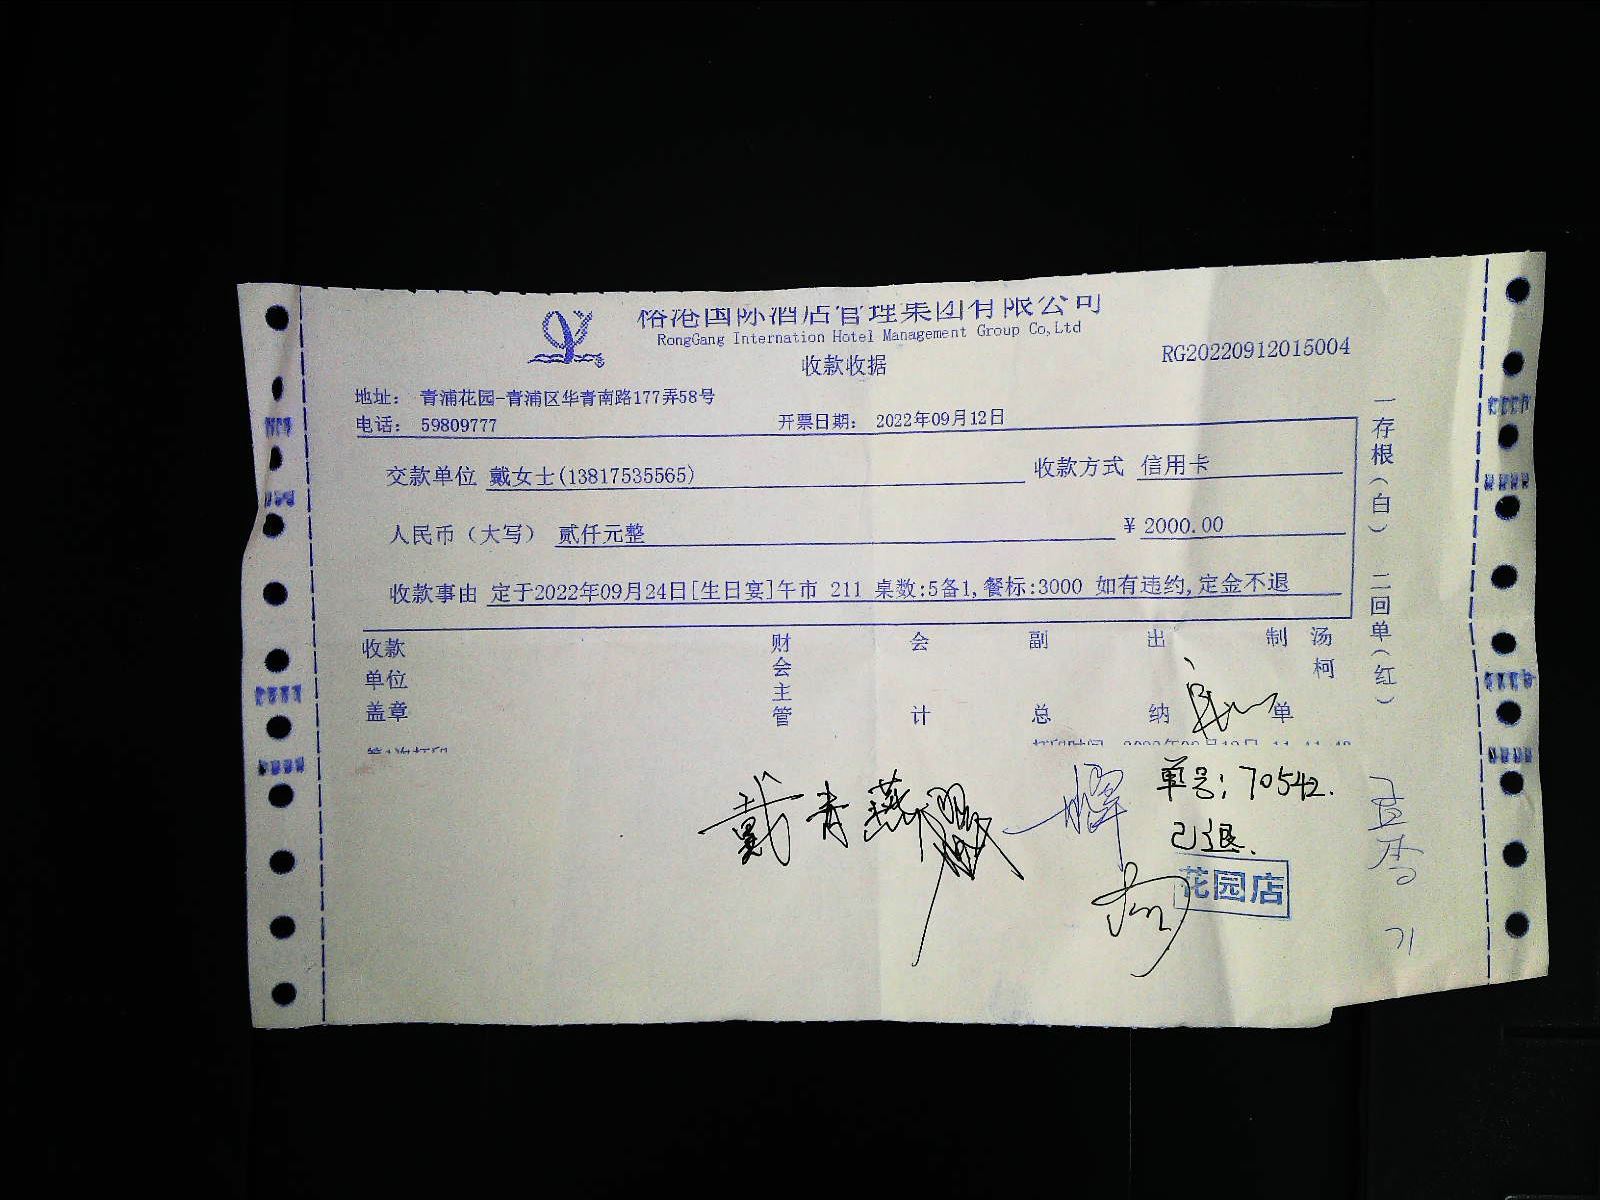 裕港国际酒店管理集团有限公司
RongGang Internation Hotel Management Group Co,Ltd
收款收据
RG20220912015004
地址： 青浦花园-青浦区华青南路177弄58号
电话： 59809777 开票日期： 2022年09月12日
交款单位 戴女士(13817535565) 收款方式 信用卡
人民币（大写） 贰仟元整 ¥ 2000.00
收款事由 定于2022年09月24日[生日宴]午市 211 桌数:5备1,餐标:3000 如有违约,定金不退
收款单位盖章 财会主管 会计 副总 出纳 制单 汤柯
一存根（白） 二回单（红）
第1次打印
单号：70542.
已退.
戴青燕
花园店